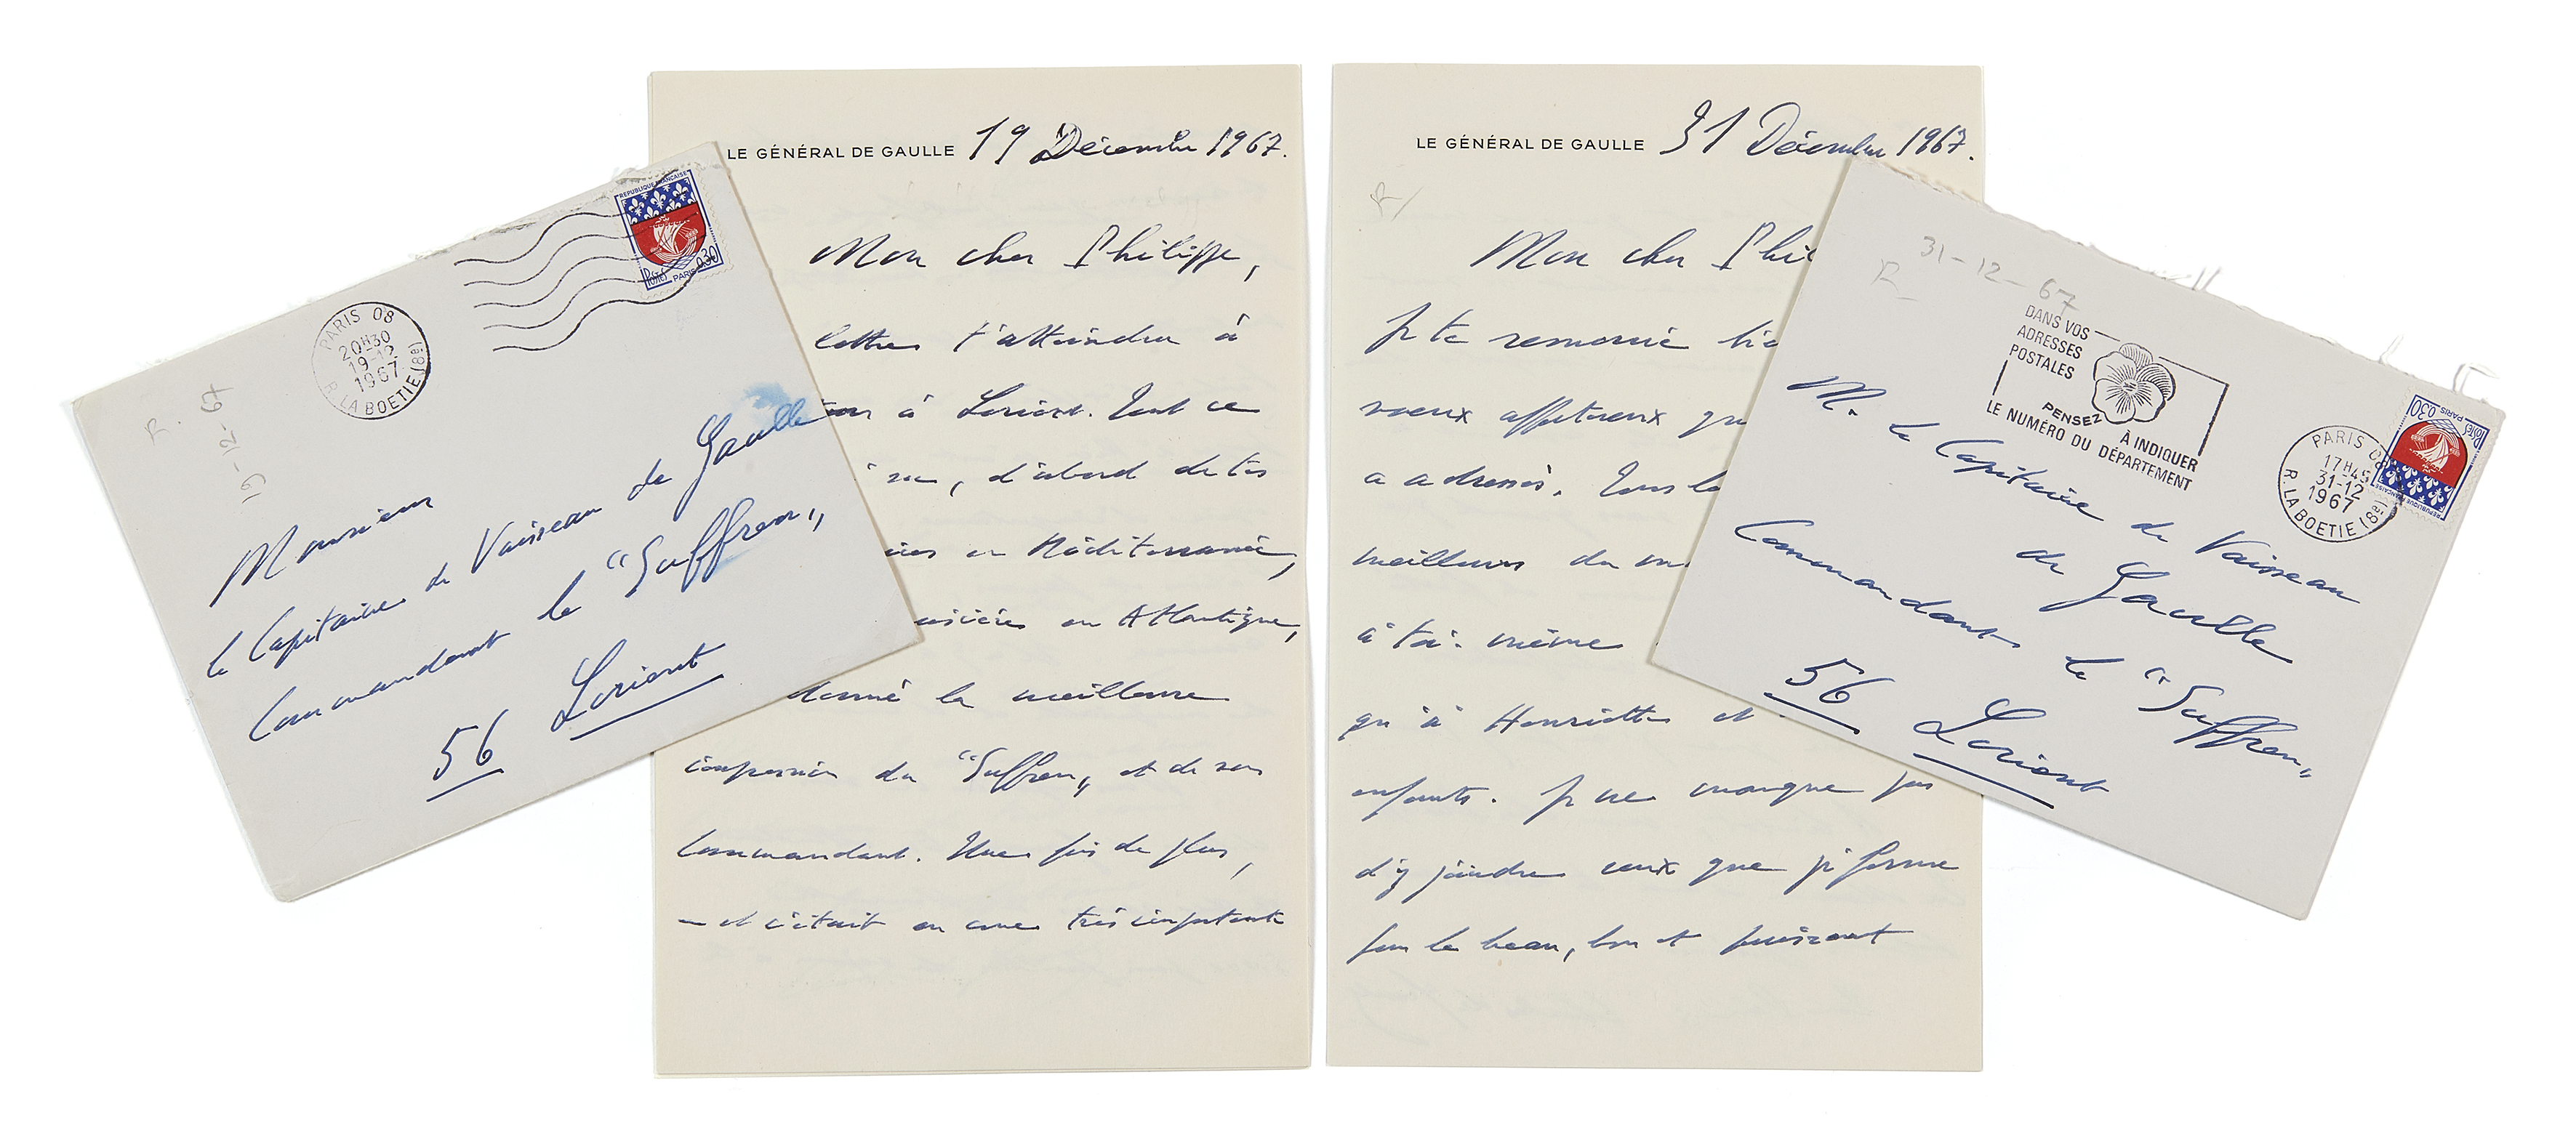 LE GÉNÉRAL DE GAULLE 19 Décembre 1967.
Mon cher Philippe,
lettre t'atteindra à
à Lorient. Tout ce
d'abord de tes
en Méditerranée,
en Atlantique,
donné la meilleure
impression du "Suffren" et de son
Commandant. Une fois de plus,
— et c'était en une très importante
PARIS 08
20H30
19-12
1967
R. LA BOETIE (8e)
REPUBLIQUE FRANÇAISE
POSTES PARIS 0,30
R.
19-12-67
Monsieur
le Capitaine de Vaisseau de Gaulle
Commandant le "Suffren"
56 Lorient
LE GÉNÉRAL DE GAULLE 31 Décembre 1967.
R/
Mon cher Phi
Je te remercie bie
voeux affectueux qu
a adressés. Tous le
meilleurs du mo
à toi-même
qu'à Henriette et
enfants. Je ne manque pas
d'y joindre ceux que je forme
pour le beau, bon et puissant
31-12-67
R
DANS VOS
ADRESSES
POSTALES
PENSEZ
À INDIQUER
LE NUMÉRO DU DÉPARTEMENT
PARIS 08
17H45
31-12
1967
R. LA BOETIE (8e)
REPUBLIQUE FRANÇAISE
POSTES PARIS 0,30
M. le Capitaine de Vaisseau
de Gaulle
Commandant le "Suffren"
56 Lorient